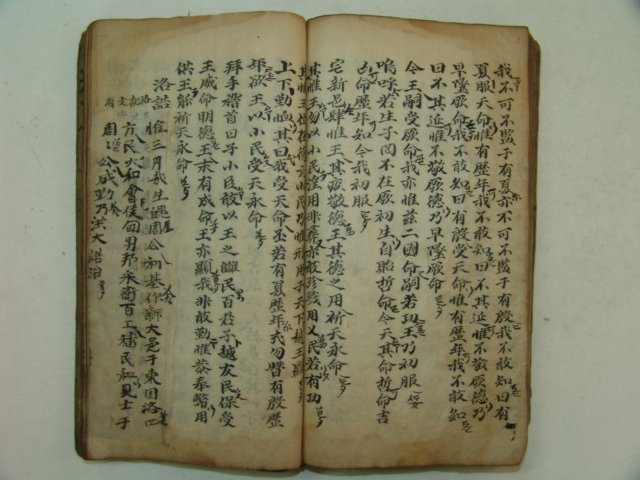 我不可不監于有夏亦不可不監于有殷我不敢知曰有
夏服天命惟有歷年我不敢知曰不其延惟不敬厥德乃
早墜厥命我不敢知曰有殷受天命惟有歷年我不敢知
曰不其延惟不敬厥德乃早墜厥命
今王嗣受厥命我亦惟玆二國命嗣若功王乃初服
嗚呼若生子罔不在厥初生自貽哲命今天其命哲命吉
凶命歷年知今我初服
宅新邑肆惟王其疾敬德王其德之用祈天永命
其惟王勿以小民淫用非彝亦敢殄戮用乂民若有功
其惟王位在德元小民乃惟刑用于天下越王顯
上下勤恤其曰我受天命丕若有夏歷年式勿替有殷歷
年欲王以小民受天永命
拜手稽首曰予小臣敢以王之讎民百君子越友民保受
王威命明德王末有成命王亦顯我非敢勤惟恭奉幣用
供王能祈天永命
洛誥
惟三月哉生魄周公初基作新大邑于東国洛四
方民大和會侯甸男邦采衛百工播民和見士于
周公咸勤乃洪大誥治